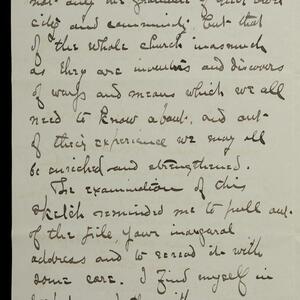 not only the gratitude of your own
city and community but that
of the whole church inasmuch
as they are inventors and discovers
of ways and means which we all
need to know about, and out
of their experience we may all
be enriched and strengthened.
The examination of this
sketch reminded me to pull out
of the file, your inaugural
address and to reread it with
some care. I find myself in